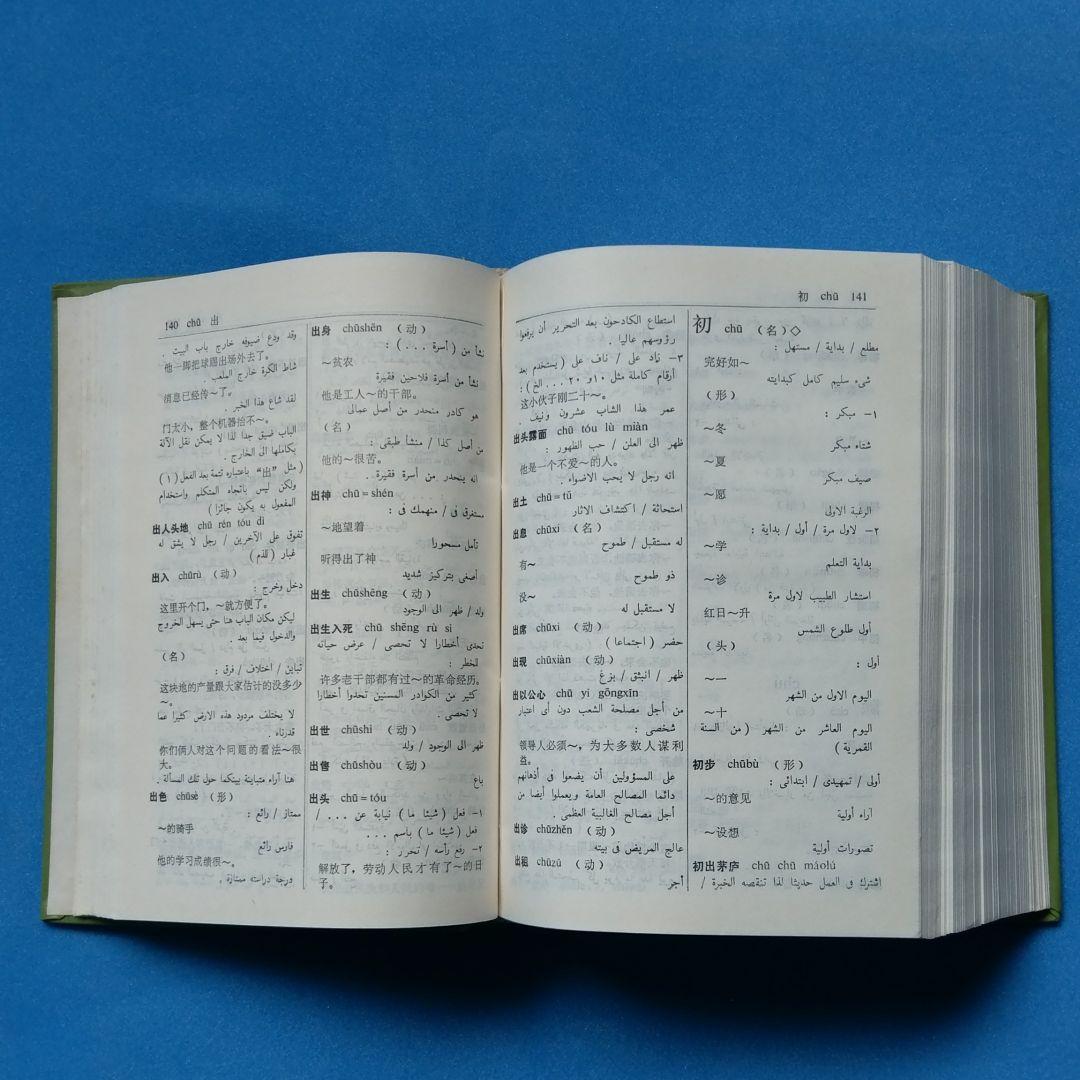 140 chū 出
وقد ودع ضيوفه خارج باب البيت .
他一脚把球踢出场外去了。
شاط الكرة خارج الملعب .
消息已经传～了。
لقد شاع هذا الخبر .
门太小，整个机器抬不～。
الباب ضيق جدا لذا لا يمكن نقل الآلة
بكاملها الى الخارج .
(١) مثل "出" باعتباره تتمة بعد الفعل )
ولكن ليس باتجاه المتكلم واستخدام
المفعول به يكون جائزا )
出人头地 chū rén tóu dì
تفوق على الآخرين / رجل لا يشق له
غبار ( للذم )
出入 chūrù （动）
دخل وخرج :
这里开个门，～就方便了。
ليكن مكان الباب هنا حتى يسهل الخروج
والدخول فيما بعد .
（名）
تباين / اختلاف / فرق :
这块地的产量跟大家估计的没多少
～。
لا يختلف مردود هذه الارض كثيرا عما
قدرناه .
你们俩人对这个问题的看法～很
大。
هنا آراء متباينة بينكما حول تلك المسألة .
出色 chūsè （形）
ممتاز / رائع :
～的骑手
فارس رائع
他的学习成绩很～。
درجة دراسته ممتازة .
出身 chūshēn （动）
نشأ من ( أسرة . . . ) :
～贫农
نشأ من أسرة فلاحين فقيرة
他是工人～的干部。
هو كادر منحدر من أصل عمالى
（名）
من أصل كذا / منشأ طبقى :
他的～很苦。
انه ينحدر من أسرة فقيرة .
出神 chū＝shén
مستغرق فى / منهمك فى :
～地望着
تأمل مسحورا
听得出了神
أصغى بتركيز شديد
出生 chūshēng （动）
ولد / ظهر الى الوجود
出生入死 chū shēng rù sǐ
تحدى أخطارا لا تحصى / عرض حياته
للخطر :
许多老干部都有过～的革命经历。
كثير من الكوادر المسنين تحدوا أخطارا
لا تحصى .
出世 chūshì （动）
ظهر الى الوجود / ولد
出售 chūshòu （动）
باع
出头 chū＝tóu
١- فعل ( شيئا ما ) نيابة عن . . . /
فعل ( شيئا ما ) باسم . . .
٢- رفع رأسه / تحرر :
解放了，劳动人民才有了～的日
子。
初 chū 141
استطاع الكادحون بعد التحرير أن يرفعوا
رؤوسهم عاليا .
٣- زاد على / ناف على ( يستخدم بعد
أرقام كاملة مثل ١٠ و ٢٠ . . . الخ ) :
这小伙子刚二十～。
عمر هذا الشاب عشرون ونيف .
出头露面 chū tóu lù miàn
ظهر الى العلن / حب الظهور :
他是一个不爱～的人。
انه رجل لا يحب الاضواء .
出土 chū＝tǔ
استحاثة / اكتشاف الاثار
出息 chūxi （名）
له مستقبل / طموح
有～
ذو طموح
没～
لا مستقبل له
出席 chūxí （动）
حضر ( اجتماعا )
出现 chūxiàn （动）
ظهر / انبثق / بزغ
出以公心 chū yǐ gōngxīn
من أجل مصلحة الشعب دون أى اعتبار
شخصى :
领导人必须～，为大多数人谋利
益。
على المسؤولين أن يضعوا فى أذهانهم
دائما المصالح العامة ويعملوا أيضا من
أجل مصالح الغالبية العظمى .
出诊 chūzhěn （动）
عالج المريض فى بيته
出租 chūzū （动）
أجر
初 chū （名）◇
مطلع / بداية / مستهل :
完好如～
شىء سليم كامل كبدايته
（形）
١- مبكر :
～冬
شتاء مبكر
～夏
صيف مبكر
～愿
الرغبة الاولى
٢- لاول مرة / أول / بداية :
～学
بداية التعلم
～诊
استشار الطبيب لاول مرة
红日～升
أول طلوع الشمس
（头）
أول :
～一
اليوم الاول من الشهر
～十
اليوم العاشر من الشهر ( من السنة
القمرية )
初步 chūbù （形）
أولى / تمهيدى / ابتدائى :
～的意见
آراء أولية
～设想
تصورات أولية
初出茅庐 chū chū máolú
اشترك فى العمل حديثا لذا تنقصه الخبرة /